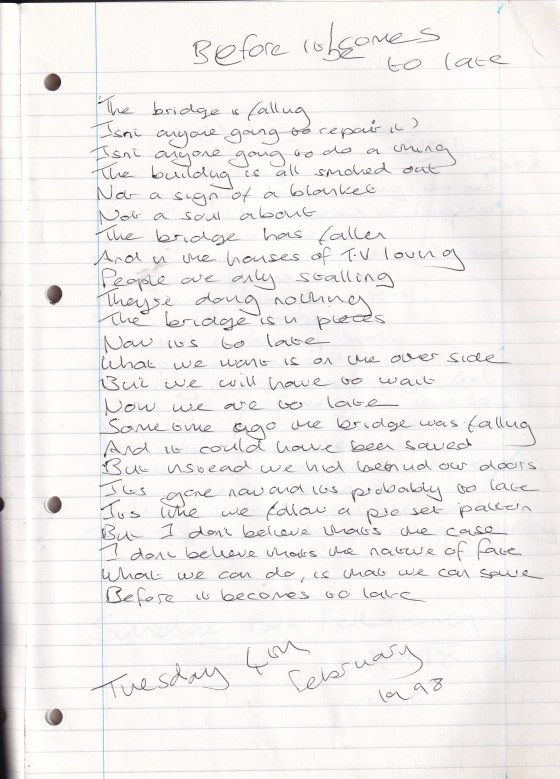 Before it becomes
to late
The bridge is falling
Isnt anyone going to repair it?
Isnt anyone going to do a thing
The building is all smoked out
Not a sign of a blanket
Not a soul about
The bridge has fallen
And in the houses of T.V loving
People are only stalling
They're doing nothing
The bridge is in pieces
Now its to late
What we want is on the over side
But we will have to wait
Now we are to late
Some time ago the bridge was falling
And it could have been saved
But instead we hid behind our doors
Its gone now and its probably to late
Its like we follow a pre set pattern
But I dont believe thats the case
I dont believe thats the nature of fate
What we can do, is that we can save
Before it becomes to late
Tuesday 4th
February
1998